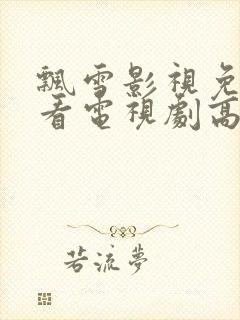 飄雪影視免
看電視劇高
若流夢